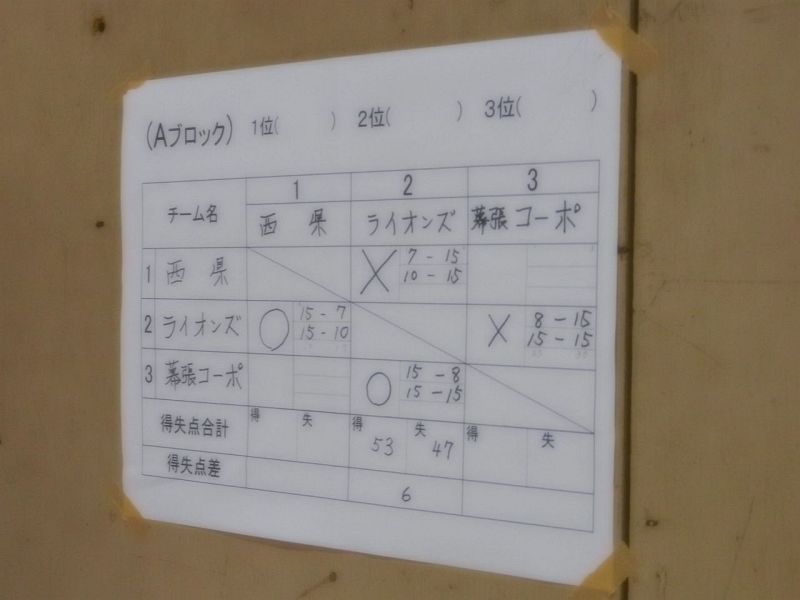 (Aブロック) 1位( ) 2位( ) 3位( )
チーム名 1 2 3
西 県 ライオンズ 幕張コーポ
1 西 県 × 7 - 15
10 - 15
2 ライオンズ ○ 15 - 7 × 8 - 15
15 - 10 15 - 15
3 幕張コーポ ○ 15 - 8
15 - 15
得失点合計 得 失 得 53 失 47 得 失
得失点差 6